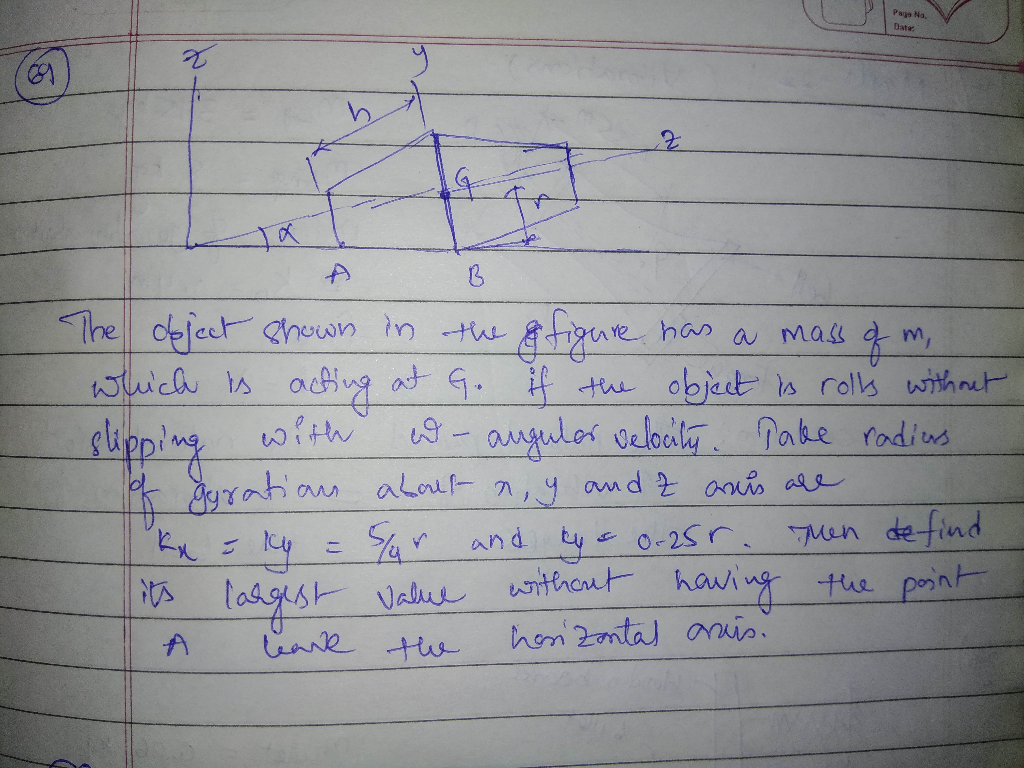 Page No.
Date:
Q1
x y
h
z
G
r
α
A B
The object shown in the figure has a mass of m,
which is acting at G. if the object is rolls without
slipping with ω - angular velocity. Take radius
of gyration about x, y and z axis are
Kx = Ky = 5/4 r and ky = 0.25 r. Then find
its largest value without having the point
A leave the horizontal axis.